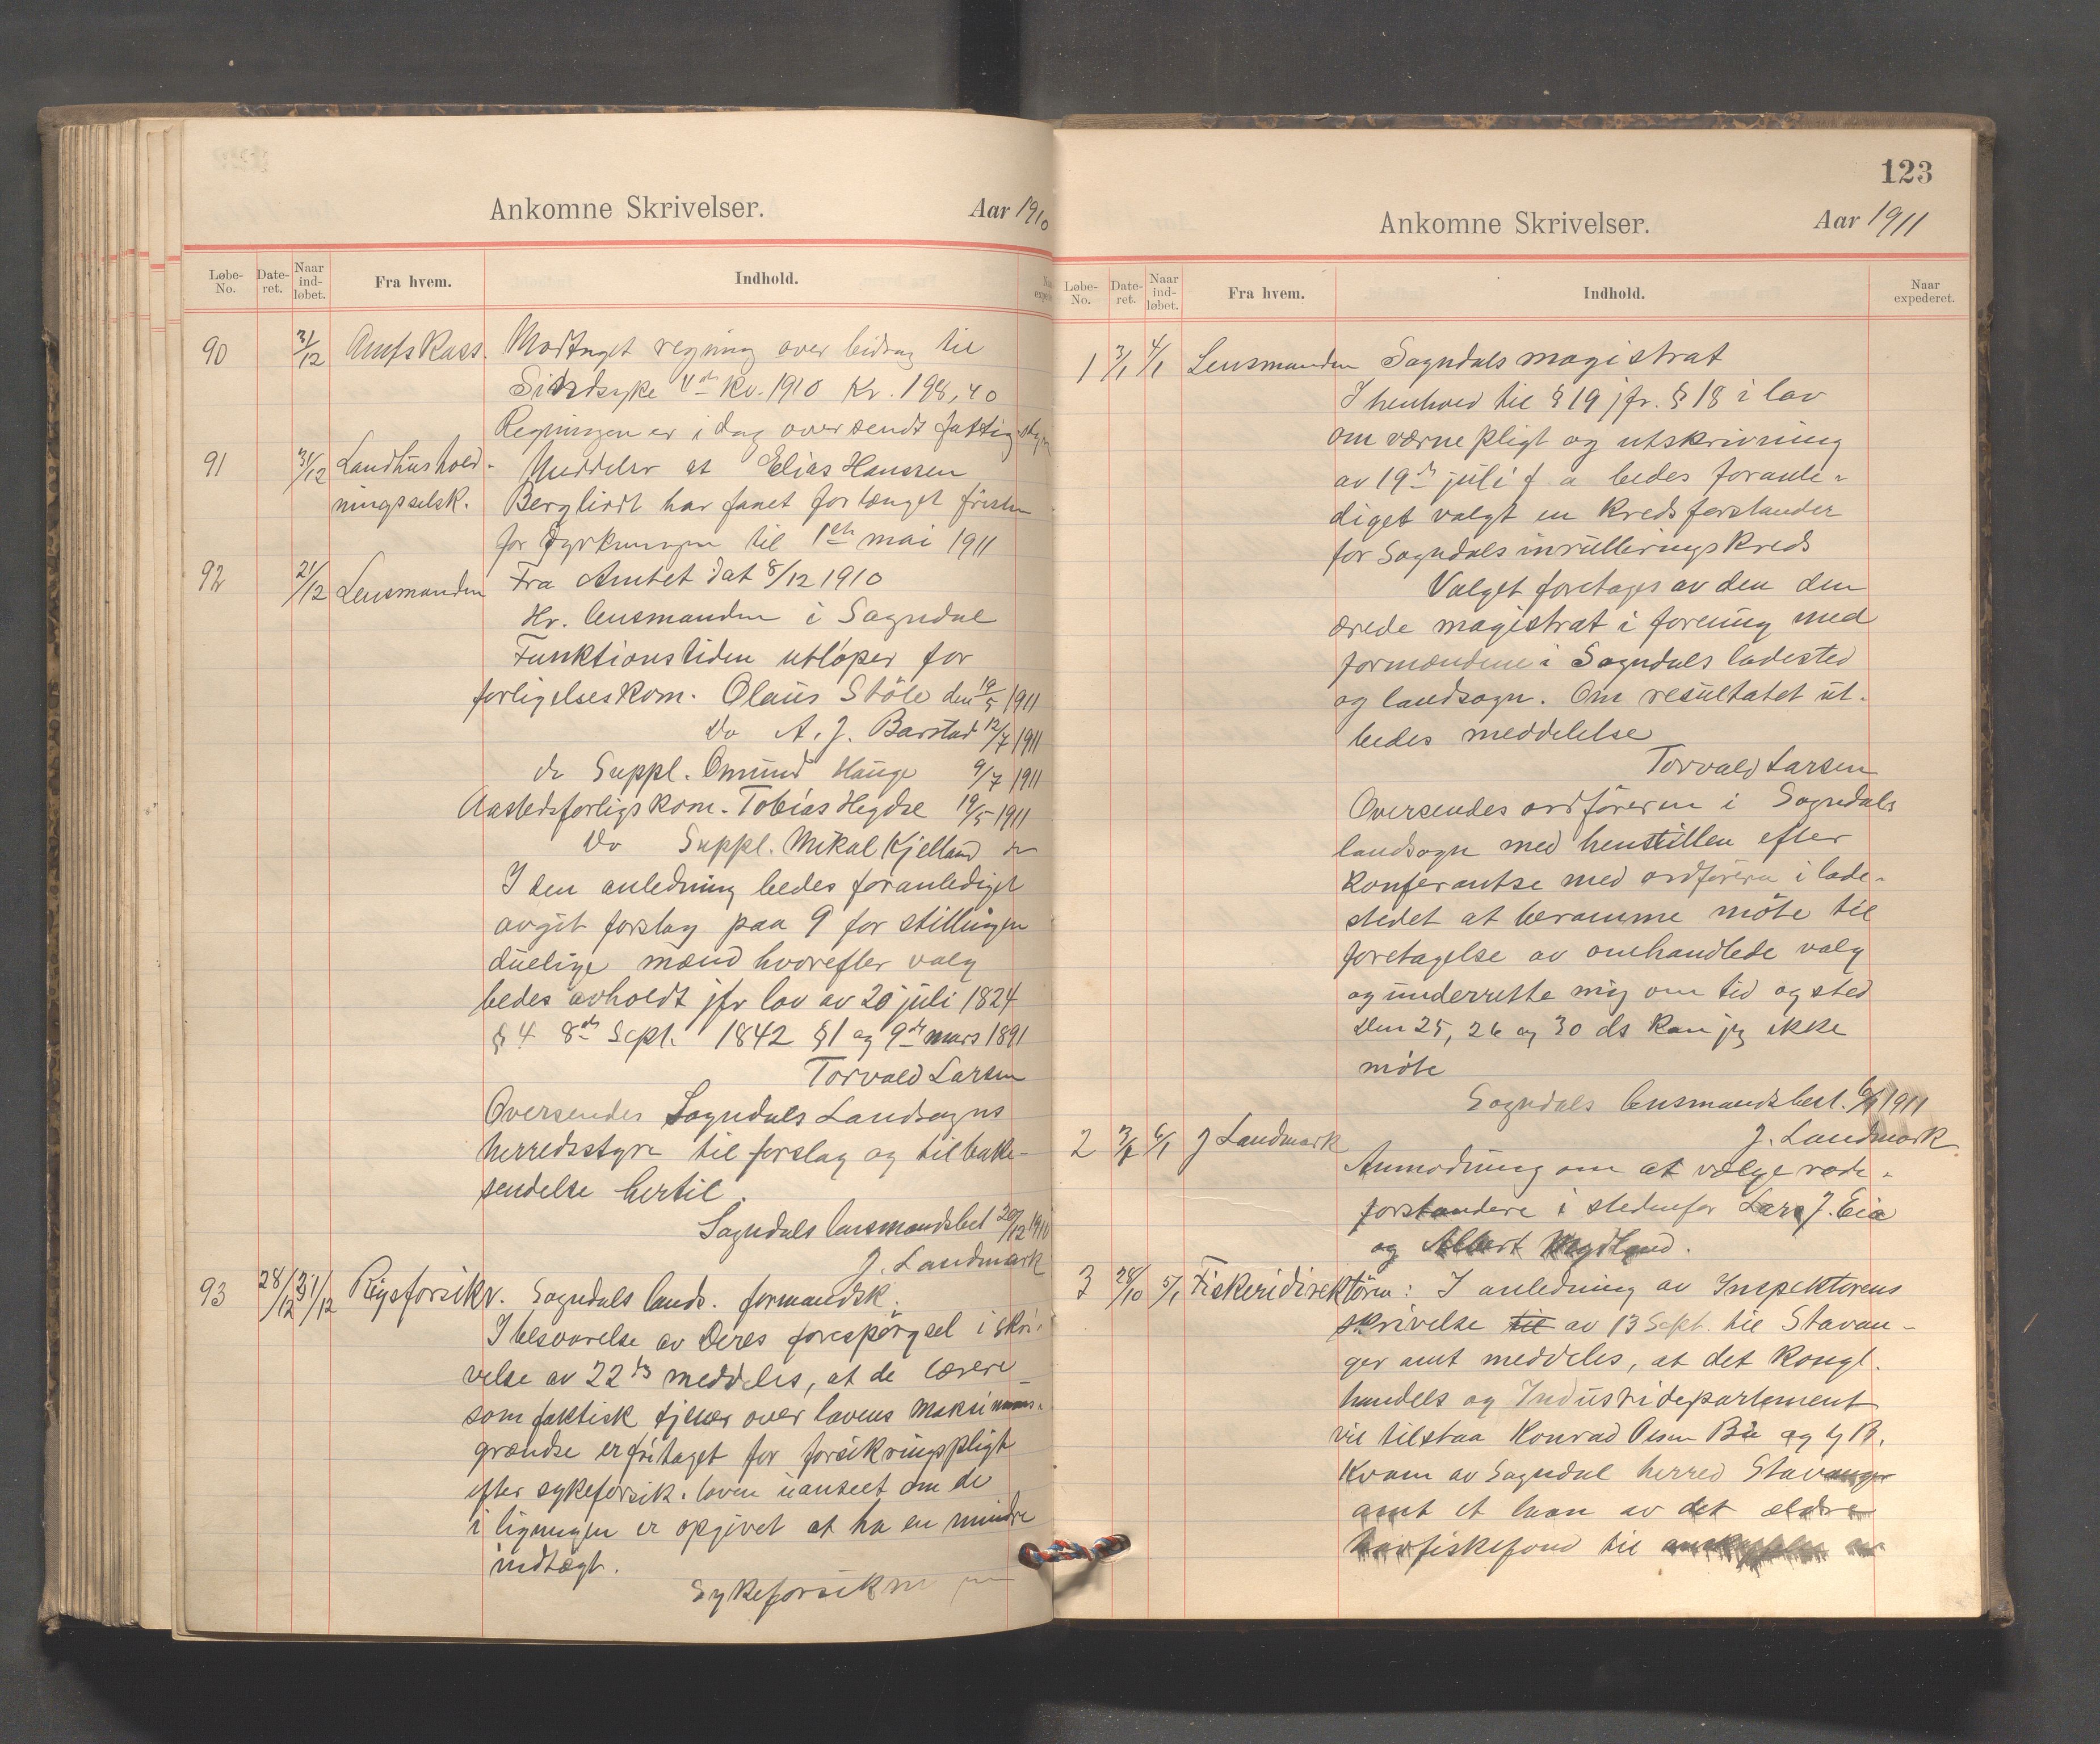 Ankomne Skrivelser. Aar 1910
Løbe-No. Date-ret. Naar ind-løbet. Fra hvem. Indhold.
90 31/12 Amtskass. Modtaget regning over bidrag til
Sindsyke 4de Kv. 1910 Kr. 198,40
Regningen er i dag oversendt fattigstyr
91 31/12 Landhushold- Meddeler at Elias Hanssen
ningsselsk. Berglidt har faaet forlænget fristen
for dyrkningen til 1ste mai 1911
92 21/12 Lensmanden Fra Amtet dat 8/12 1910
Hr. lensmanden i Sogndal
Funktionstiden utløper for
forligelseskom. Olaus Støle den 19/5 1911
do A. J. Barstad 12/7 1911
do Suppl. Omund Hauge 9/7 1911
Aastedsforligskom. Tobias Hegdse 19/5 1911
do Suppl. Mikal Kjelland do
I den anledning bedes foranlediget
avgit forslag paa 9 for stillingen
duelige mænd hvorefter valg
bedes avholdt jfr lov av 20 juli 1824
§ 4 8de Sept. 1842 § 1 og 9de mars 1891
Torvald Larsen
Oversendes Sogndals Landsogns
herredsstyre til forslag og tilbake-
sendelse hertil.
Sogndals lensmandsbest 20/12 1910
J. Landmark
93 28/12 31/12 Rigsforsikr. Sogndals lands. formandsk.
I besvarelse av Deres forespørgsel i skri-
velse av 22 ds meddeles, at de lærere
som faktisk tjener over lovens maksimums-
grændse er fritaget for forsikringspligt
efter sykeforsik. loven uanseet om de
i ligningen er opgivet at ha en mindre
indtægt.
Sykeforsikr

123
Ankomne Skrivelser. Aar 1911
Løbe-No. Date-ret. Naar ind-løbet. Fra hvem. Indhold. Naar expederet.
1 3/1 4/1 Lensmanden Sogndals magistrat
I henhold til § 19 jfr. § 18 i lov
om værnepligt og utskrivning
av 19de juli f a bedes foranle-
diget valgt en kredsforstander
for Sogndals inrulleringskreds
Valget foretages av den den
ærede magistrat i forening med
formændene i Sogndals ladested
og landsogn. Om resultatet ut-
bedes meddelelse
Torvald Larsen
Oversendes ordføreren i Sogndals
landsogn med henstillen efter
konferantse med ordføreren i lade-
stedet at beramme møte til
foretagelse av omhandlede valg
og underrette mig om tid og sted
Den 25, 26 og 30 ds kan jeg ikke
møte
Sogndals lensmandsbest. 6/1 1911
J. Landmark
2 3/1 6/1 J Landmark
Anmodning om at vælge rode-
forstandere i stedenfor Lars J. Eia
og Albert Mydland.
3 28/10 5/1 Fiskeridirektøren: I anledning av Inspektørens
skrivelse til av 13 Sept. til Stavan-
ger amt meddeles, at det kongl.
handels og Industridepartement
vil tilstaa Konrad Olsen Bø og G B.
Kvam av Sogndal herred Stavanger
amt et laan av det ældre
havfiskefond til